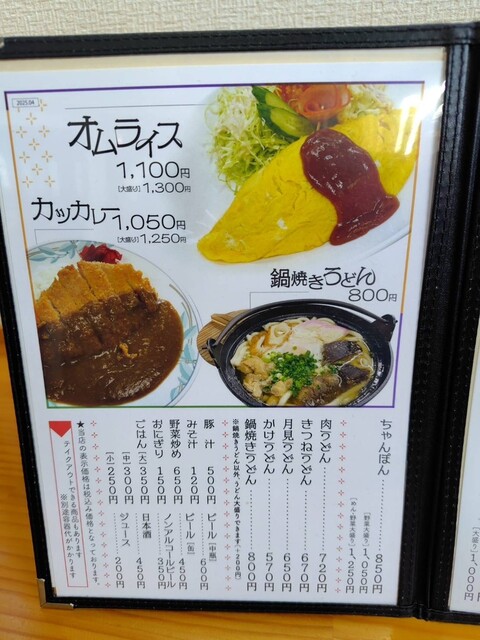 2025.04
オムライス
1,100円
[大盛り]1,300円
カツカレー 1,050円
[大盛り]1,250円
鍋焼きうどん
800円
ちゃんぽん 850円
[野菜大盛り] 1,050円
[めん・野菜大盛り] 1,250円
肉うどん 720円
きつねうどん 670円
月見うどん 650円
かけうどん 570円
鍋焼きうどん 800円
※鍋焼きうどん以外、うどん大盛りできます(+200円)
豚汁 500円
みそ汁 120円
野菜炒め 650円
おにぎり 150円
ごはん [大]350円
[中]300円
[小]250円
ビール[中瓶] 600円
ビール[缶] 450円
ノンアルコールビール 350円
日本酒 450円
ジュース 200円
★当店の表示価格は税込み価格となっております。
テイクアウトできる商品もあります
※別途容器代がかかります
[大盛り]
1,000円